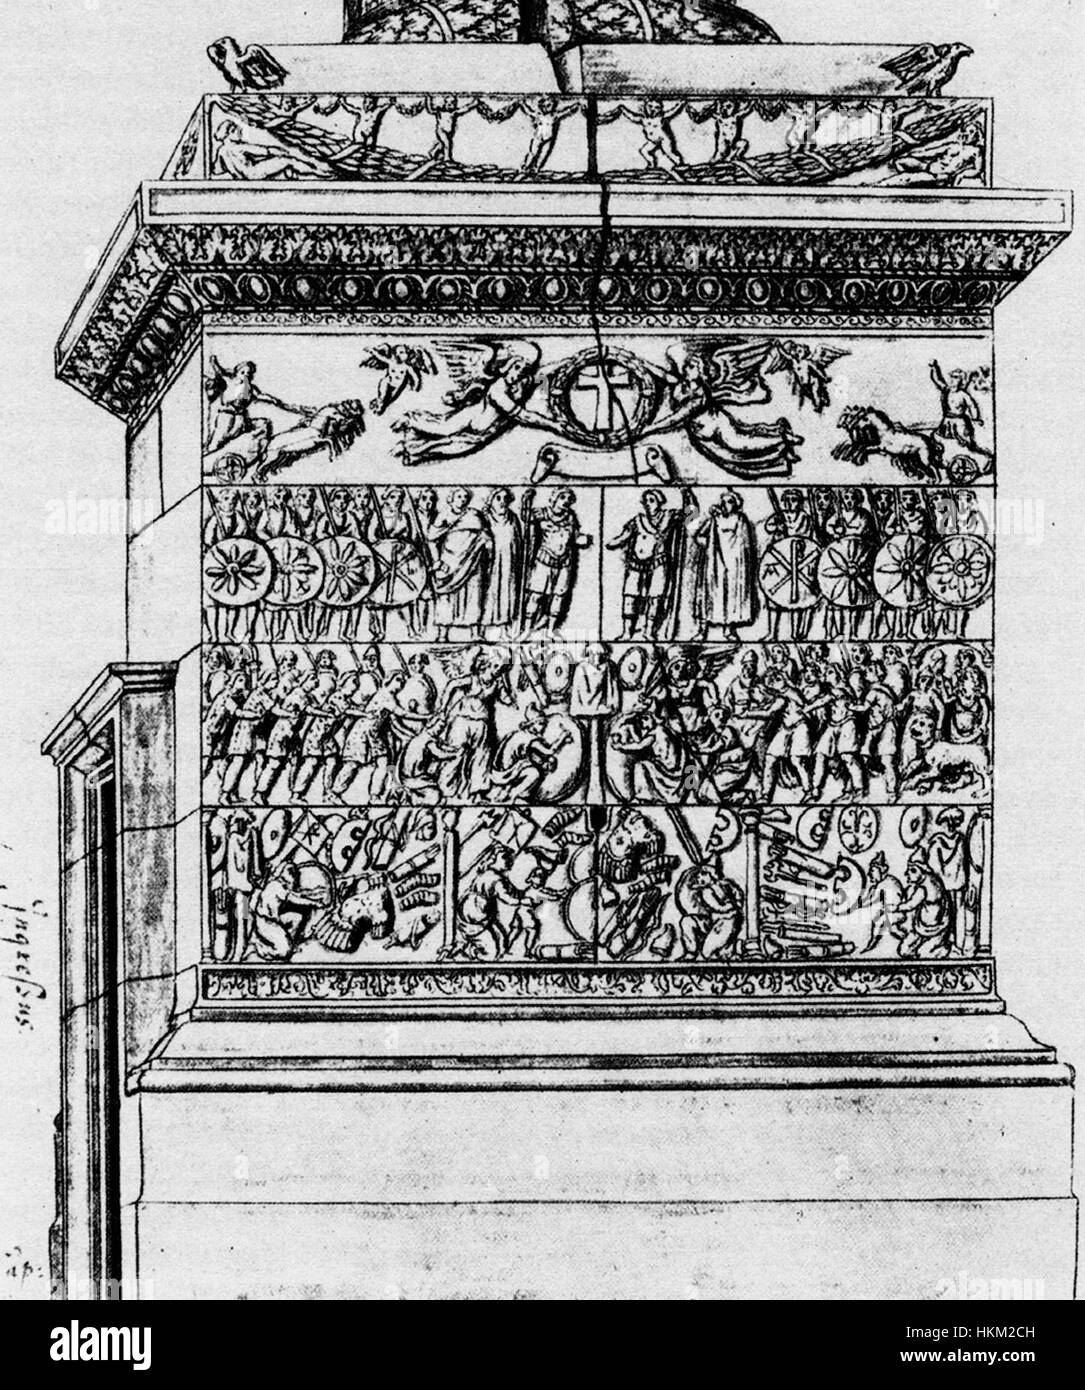 Ingressus
ap:
alamy
Image ID: HKM2CH
www.alamy.com